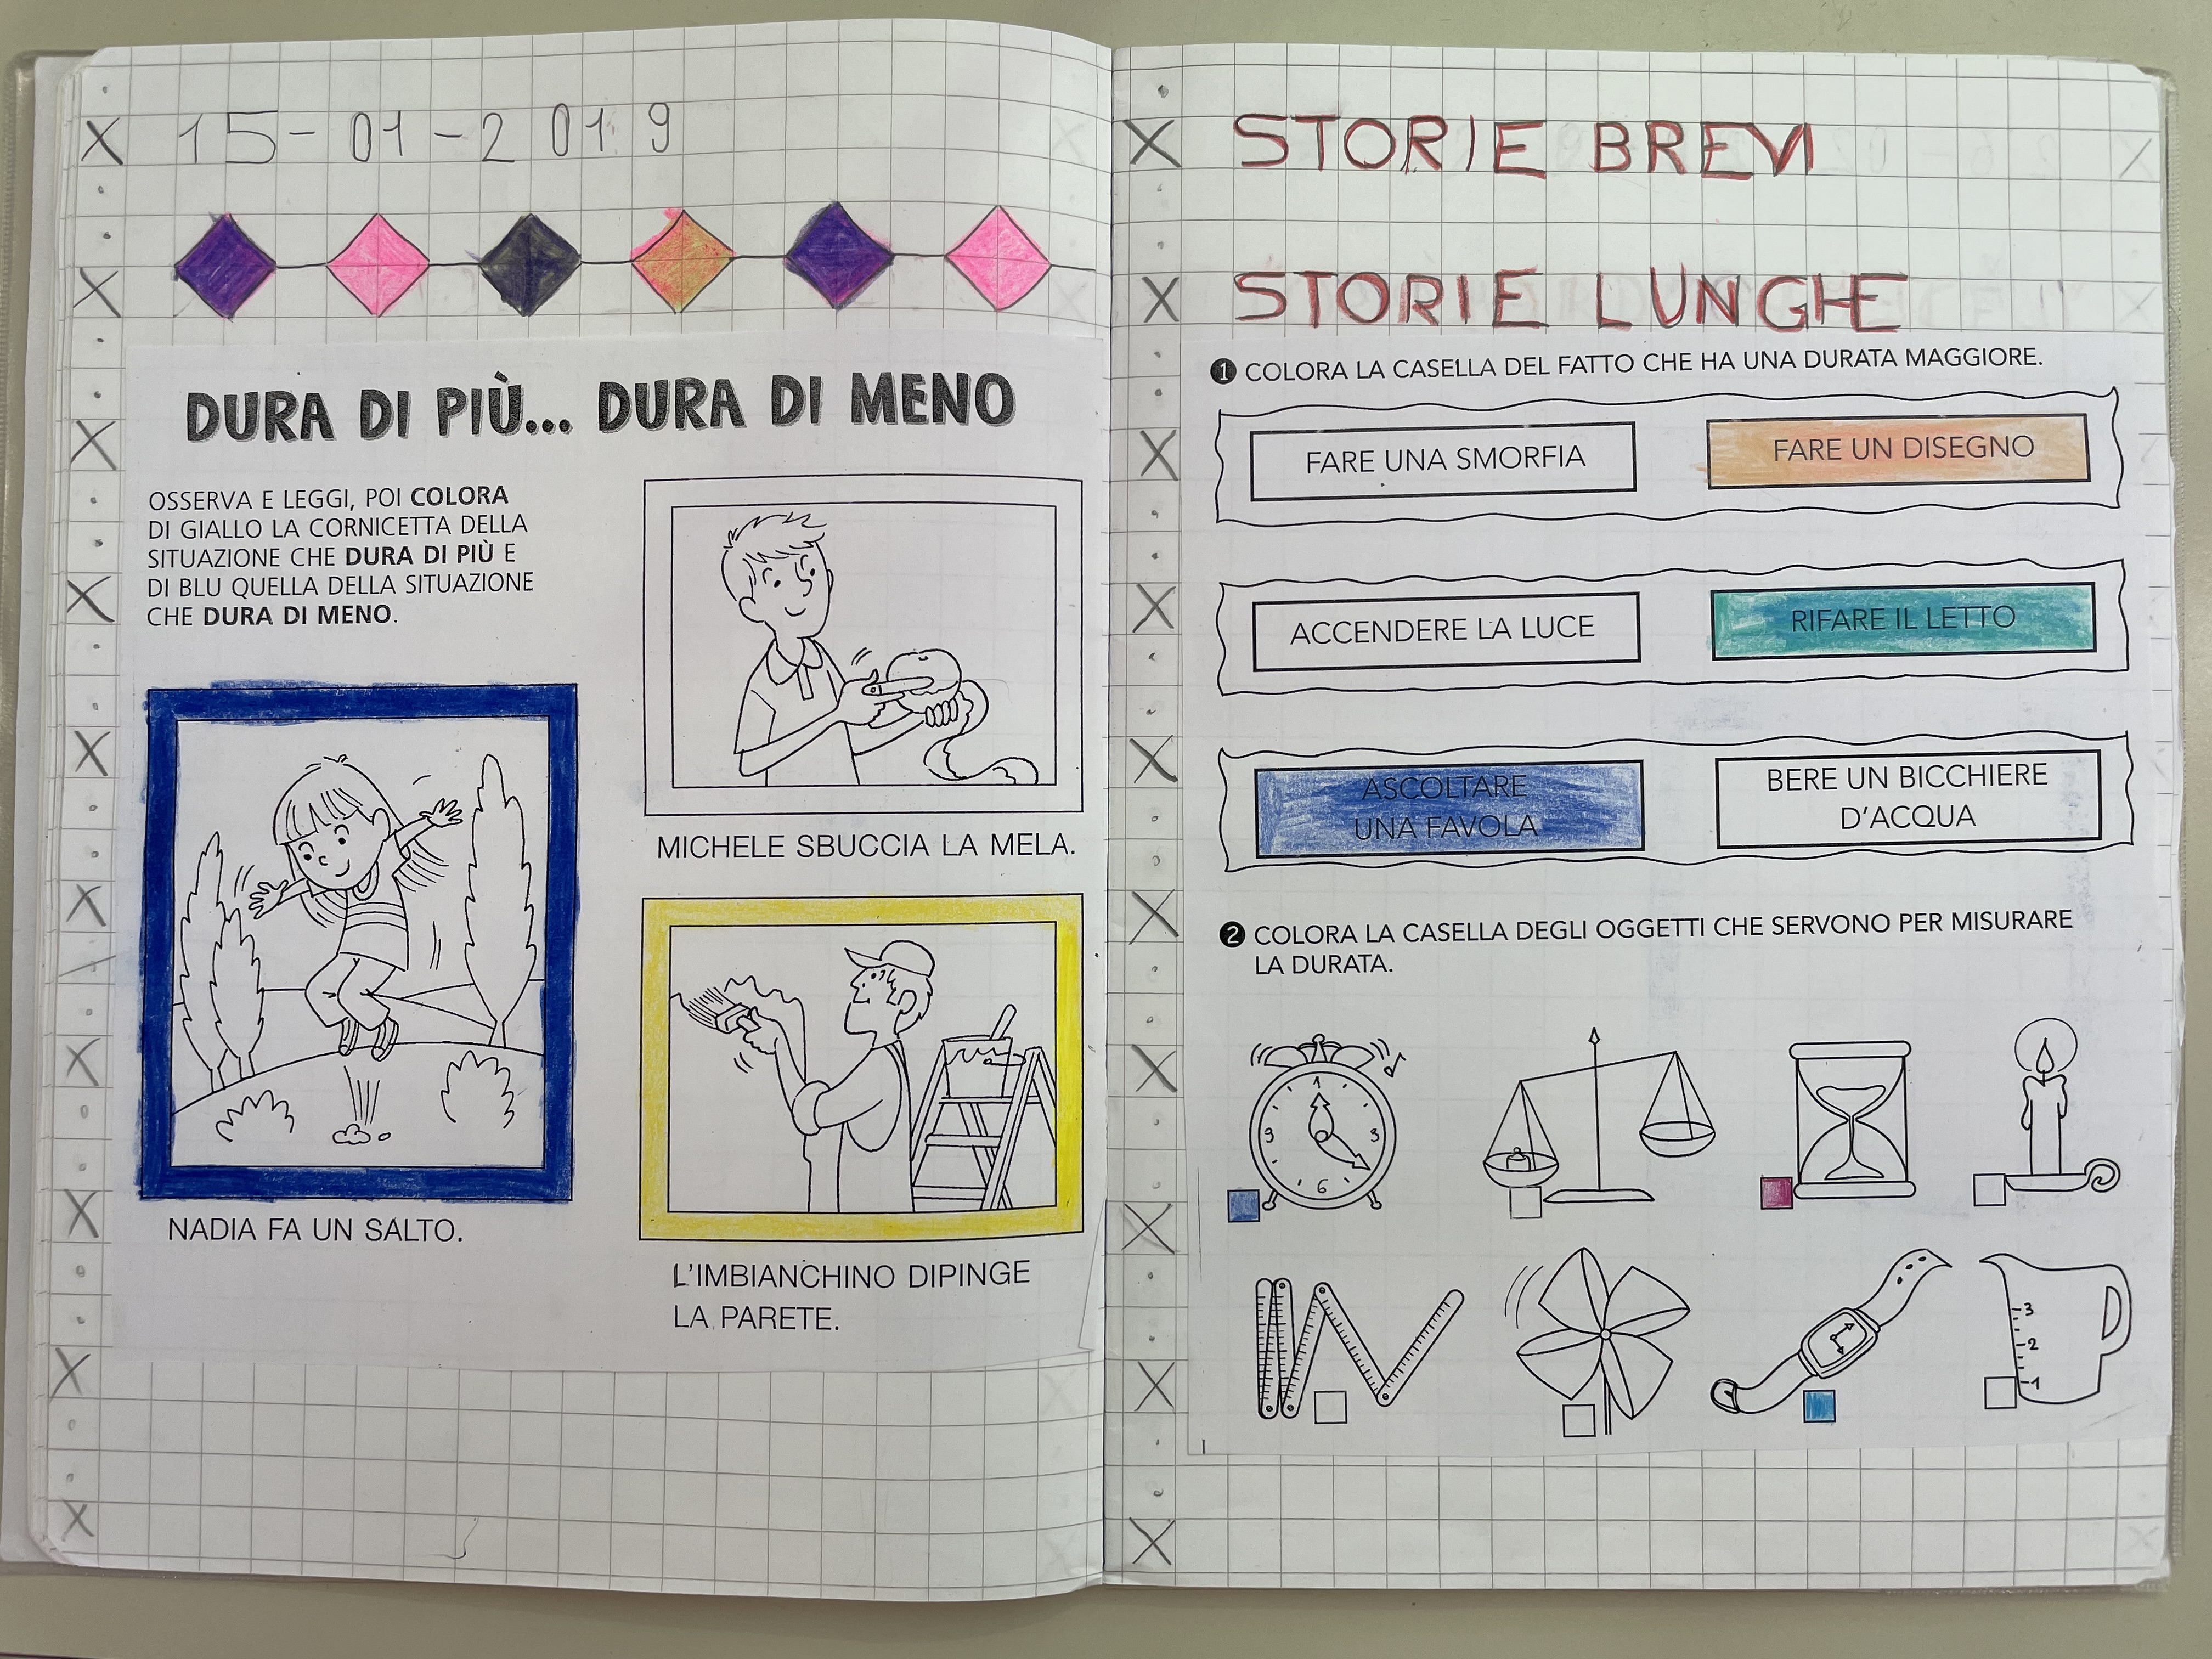 15-01-2019
DURA DI PIÙ... DURA DI MENO
OSSERVA E LEGGI, POI COLORA
DI GIALLO LA CORNICETTA DELLA
SITUAZIONE CHE DURA DI PIÙ E
DI BLU QUELLA DELLA SITUAZIONE
CHE DURA DI MENO.
MICHELE SBUCCIA LA MELA.
NADIA FA UN SALTO.
L'IMBIANCHINO DIPINGE
LA PARETE.
STORIE BREVI
STORIE LUNGHE
1 COLORA LA CASELLA DEL FATTO CHE HA UNA DURATA MAGGIORE.
FARE UNA SMORFIA
FARE UN DISEGNO
ACCENDERE LA LUCE
RIFARE IL LETTO
ASCOLTARE
UNA FAVOLA
BERE UN BICCHIERE
D'ACQUA
2 COLORA LA CASELLA DEGLI OGGETTI CHE SERVONO PER MISURARE
LA DURATA.
9 3
6
3
2
1